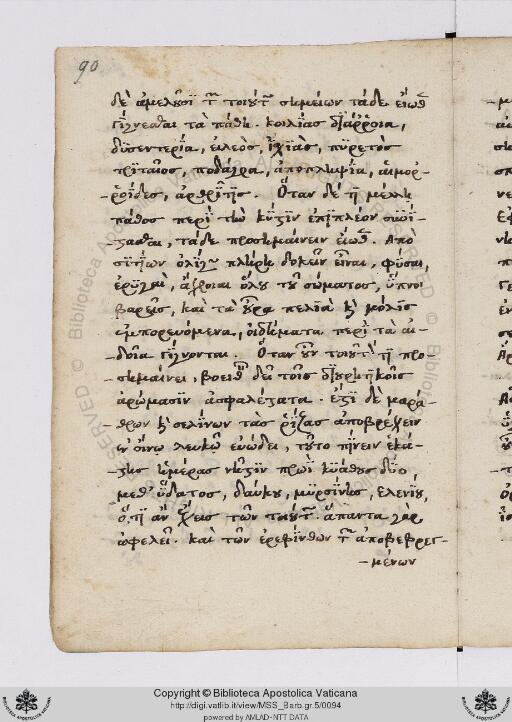 90
δὲ ἀμελοῦσϊ τ τοιούτ σημείων τάδε εἴωθ
γίγνεσθαι τὰ πάθη. κοιλίας διάρροια,
δυσεντερία, εἰλεὸς, ἰσχϊὰς, πυρετὸς
τριταῖος, ποδάγρα, ἀποπληξία, αἱμορ-
-ροΐδες, ἀρθρῖτις. Ὅταν δέ τι μέλλῃ
πάθος περὶ τὴν κύστιν ἐπιπλέον συνί-
στασθαι, τάδε προσημαίνειν εἴωθ. Ἀπὸ
σιτίων ὀλίγων πλήρη δοκεῖν εἶναι, φύσαι,
ἐρυγαὶ, ἄχροιαι ὅλου τοῦ σώματος, ὕπνοι
βαρεῖς, καὶ τὰ οὖρα πελιὰ κ μόλις
ἐμπορευόμενα, οἰδήματα περὶ τὰ αἰ-
-δοῖα γίγνονται. Ὅταν οὖν τοιοῦτό τι προ-
-σημαίνει, βοειθ δεῖ τοῖς διουρητικοῖς
ἀρώμασϊν ἀσφαλέστατα. ἔστι δὲ μαρά-
-θρων κ σελίνων τὰς ῥίζας ἀποβρέχειν
ἐν οἴνῳ λευκῷ εὐώδει, τοῦτο πίνειν ἑκά-
-στης ἡμέρας νῆστιν πρωῒ κυάθους δύο
μεθ' ὕδατος, δαύκου, μυρσίνης, ἐλενίου,
ὅ,τι ἂν ἔχεις τῶν τοιούτ. ἅπαντα γὰρ
ὠφελεῖ. καὶ τῶν ἐρεβίνθων τ ἀποβεβρεγ-
-μένων
Copyright © Biblioteca Apostolica Vaticana
http://digi.vatlib.it/view/MSS_Barb.gr.5/0094
powered by AMLAD-NTT DATA